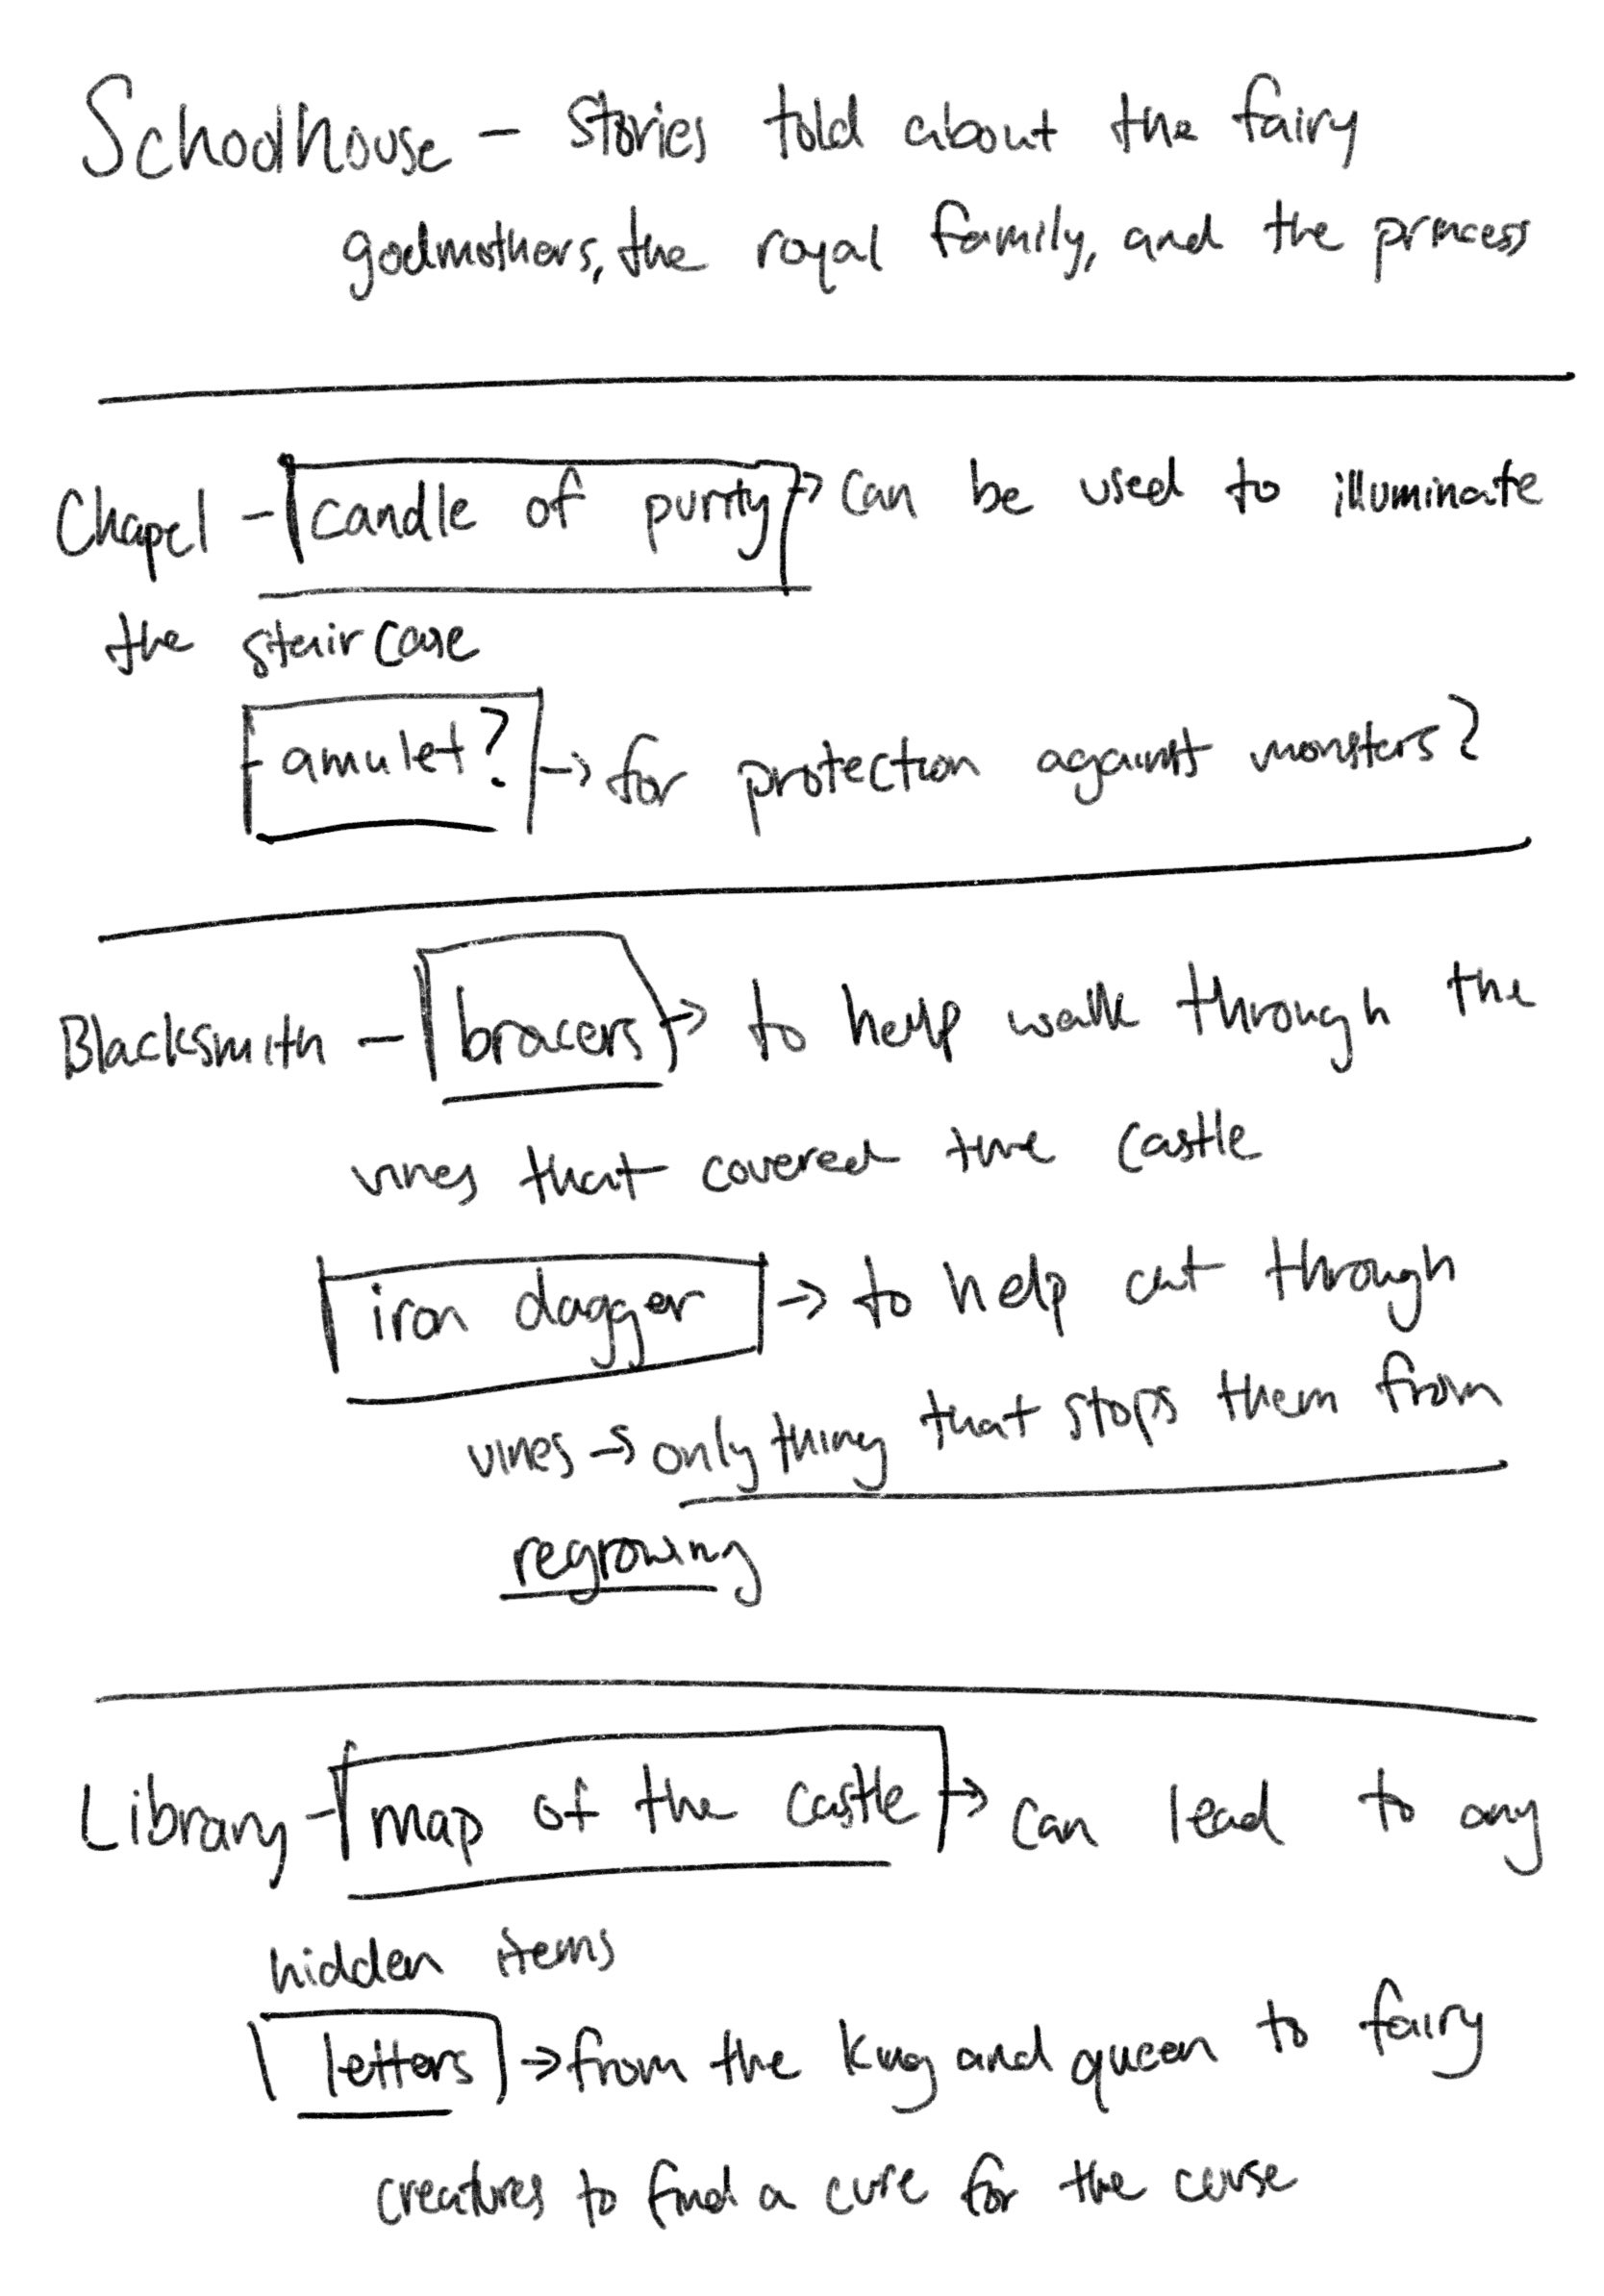 Schoolhouse - stories told about the fairy
godmothers, the royal family, and the princess
Chapel - candle of purity → can be used to illuminate
the staircase
- amulet? → for protection against monsters?
Blacksmith - bracers → to help walk through the
vines that covered the castle
iron dagger → to help cut through
vines → only thing that stops them from
regrowing
Library - map of the castle → can lead to any
hidden items
letters → from the king and queen to fairy
creatures to find a cure for the curse